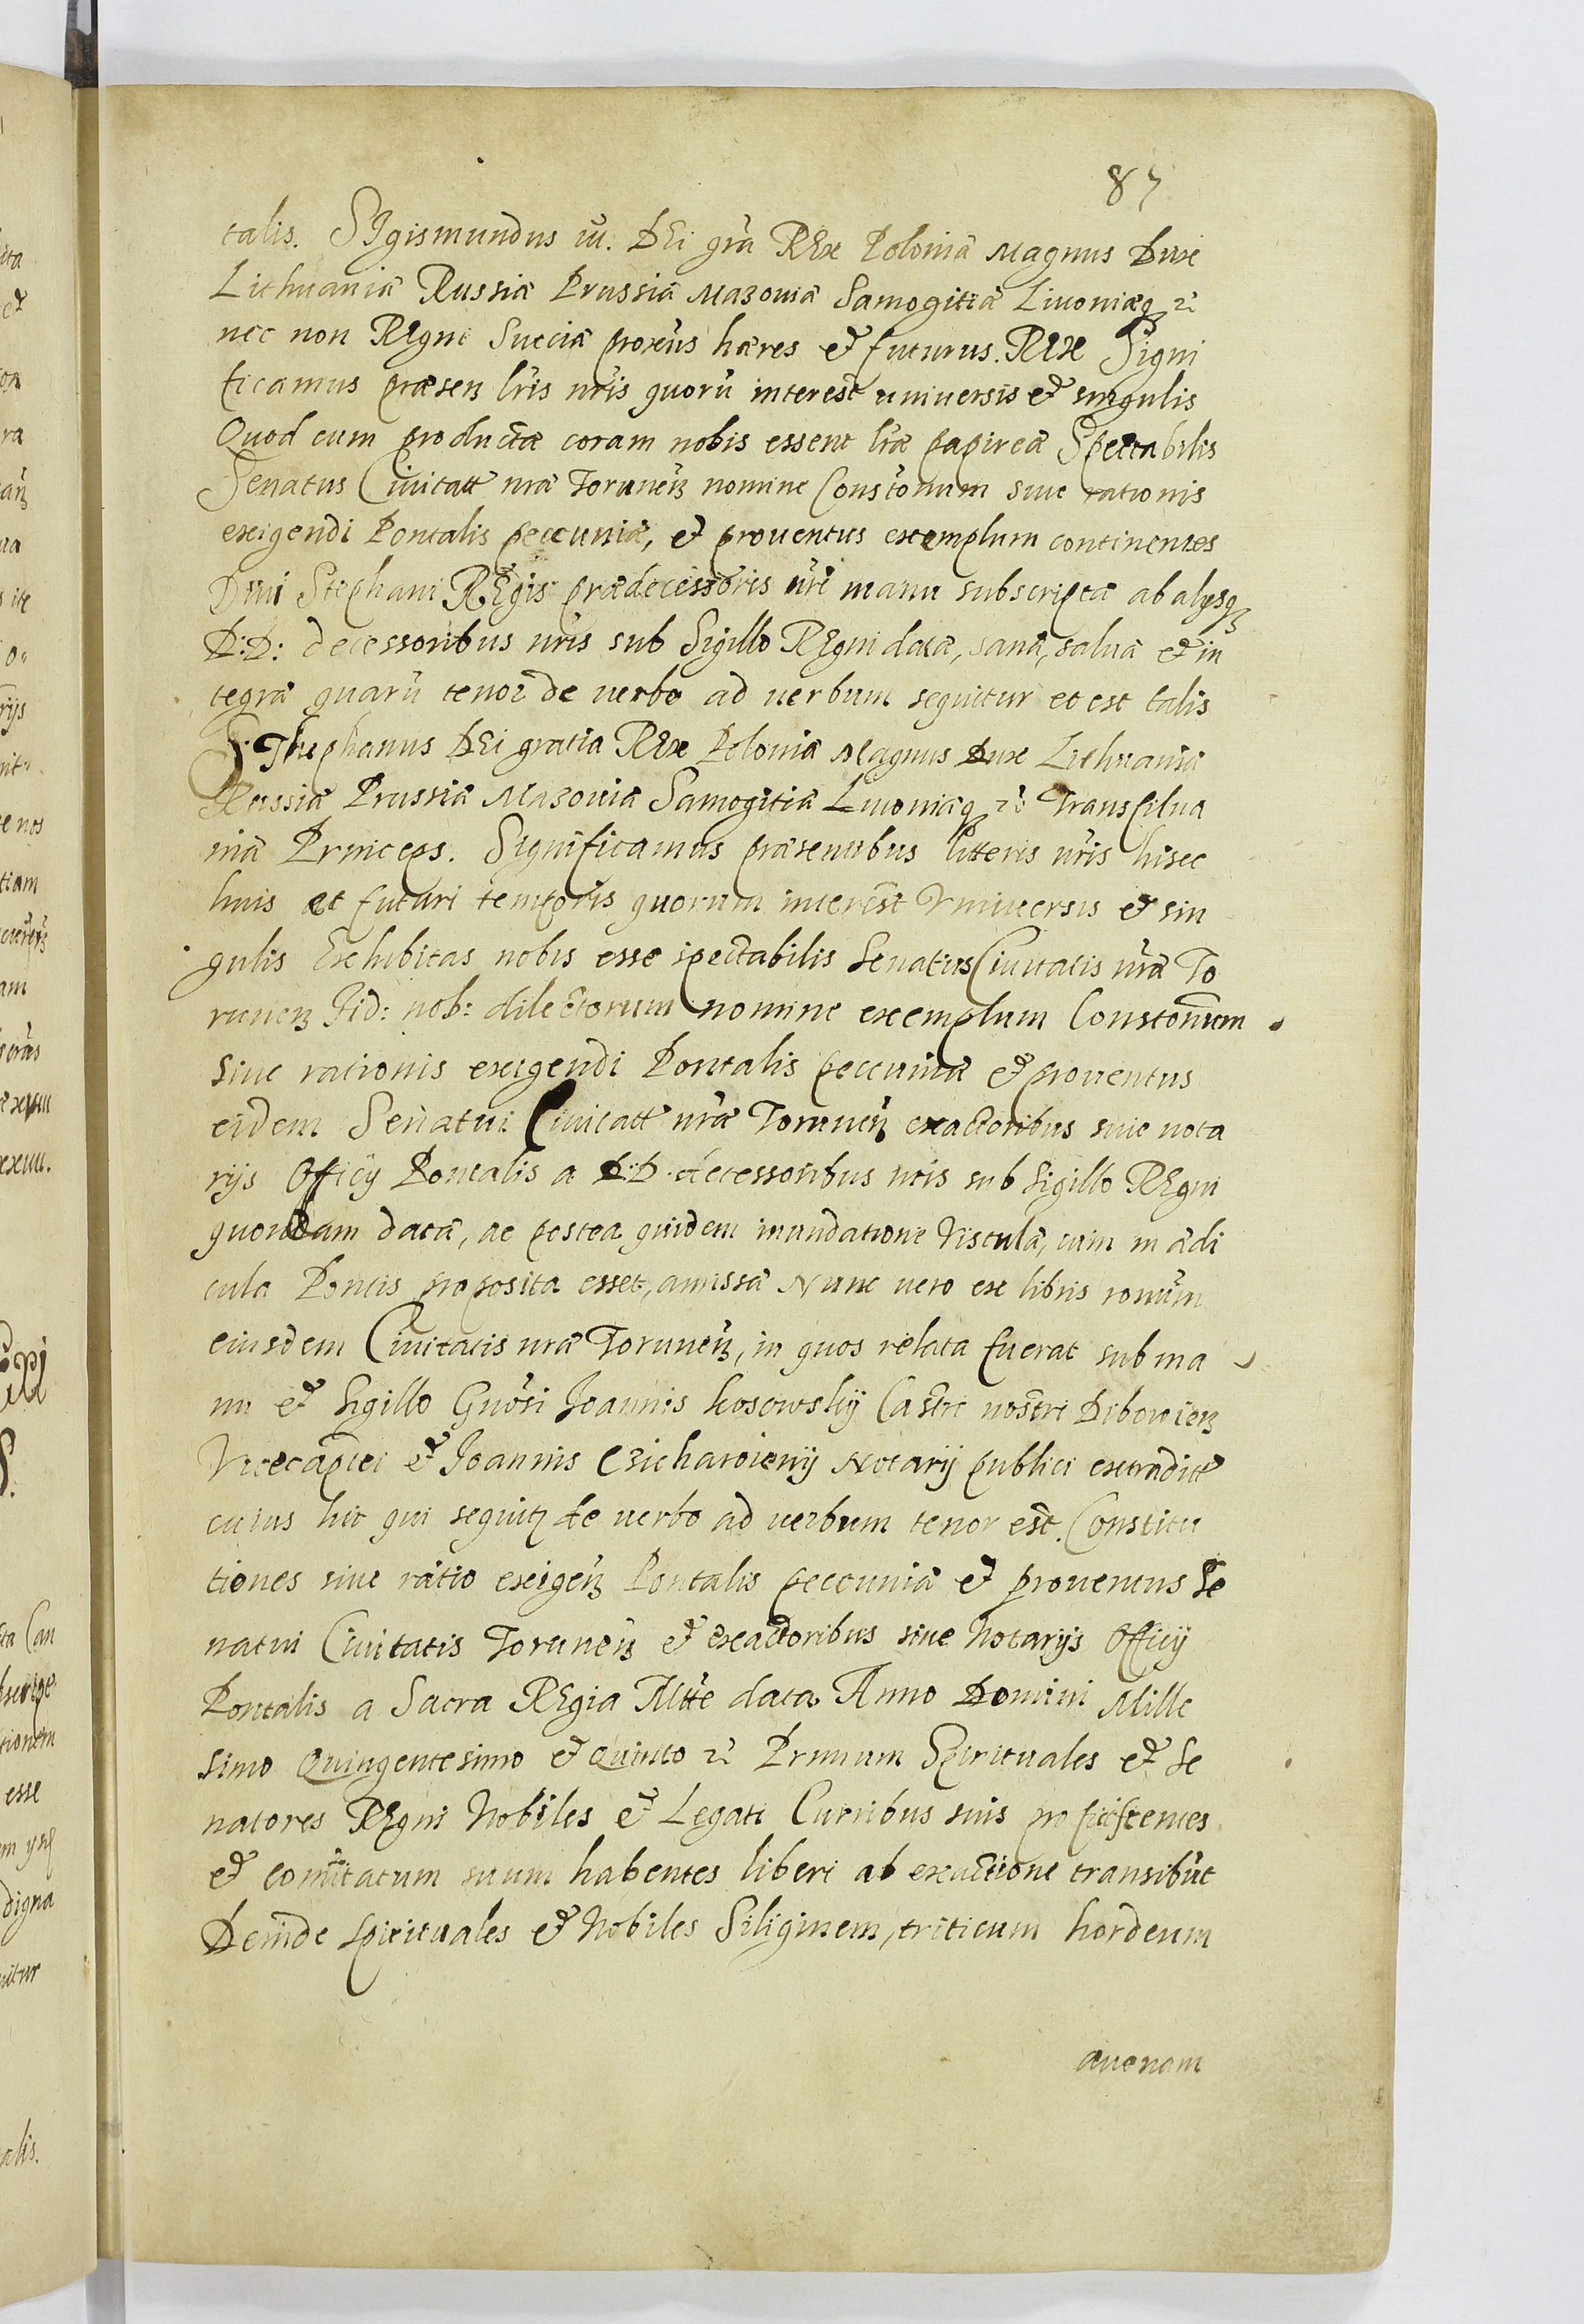 87
talis. SIgismundus III. DEi grã REx Poloniæ Magnus Dux
Lithuaniæ Russiæ Prussiæ Mazoviæ Samogitiæ Livoniæq₃ etc
nec non REgni Sueciæ proxũs hæres et futurus. REx Signi
ficamus præsen₃ lr̃is nr̃is quorũ interest universis et singulis
Quod cum productæ coram nobis essent lr̃æ papireæ Spectabilis
Senatus Civitatt nr̃æ Torunen₃ nomine Constõnum sive rationis
exigendi Pontalis peccuniæ, et proventus exemplum continentes
Dni Stephani REgis prædecessoris nr̃i manu subscriptæ ab alysq₃
D:D: decessoribus nr̃is sub Sigillo REgni datæ, sanæ, salvæ et in
tegræ quarũ tenor de verbo ad verbum sequitur et est talis
Sthephanus DEi gratia REx Poloniæ Magnus Dux Lithuaniæ
Russiæ Prussiæ Mazoviæ Samogitiæ Livoniæq₃ etc Transsilva
niæ Princeps. Significamus præsentibus litteris nr̃is hisce
huius et futuri temporis quorum interest Vniversis et sin
gulis Exhibitas nobis esse spectabilis Senatus Civitatis nr̃æ To
runen₃ Fid: nob: dilectorum nomine exemplum Constonum
Sive rationis exigendi Pontalis peccuniæ et proventus
eidem Senatui Civitatt nr̃æ Torunen₃ exactoribus sive nota
rijs Officij Pontalis a D:D. decessoribus nr̃is sub Sigillo REgni
quondam datæ, ac postea quidem inundatione Vistulæ, cum in ædi
cula Pontis proposita esset, amissæ Nunc vero ex libris ronũm
eiusdem Civitatis nræ Torunen₃, in quos relata fuerat sub ma
nu et Sigillo Gnõsi Joannis Kosowskij Castri nostri Dibowien₃
Vicecapĩtei et Joannis Czicharoienij Notarij publici extraditt
cuius hic qui sequit₃ de verbo ad verbum tenor est. Constitu
tiones sive ratio exigen₃ Pontalis peccuniæ et proventus Se
natui Civitatis Torunen₃ et exactoribus sive Notarijs Officij
Pontalis a Sacra REgia Mtte data Anno Domini Mille
simo Quingentesimo et Quinto etc Primum Spirituales et Se
natores REgni Nobiles et Legati Curribus suis proficiscentes
et comitatum suum habentes liberi ab exactione transibũt
Deinde spirituales et Nobiles Siliginem, triticum hordeum
avenam